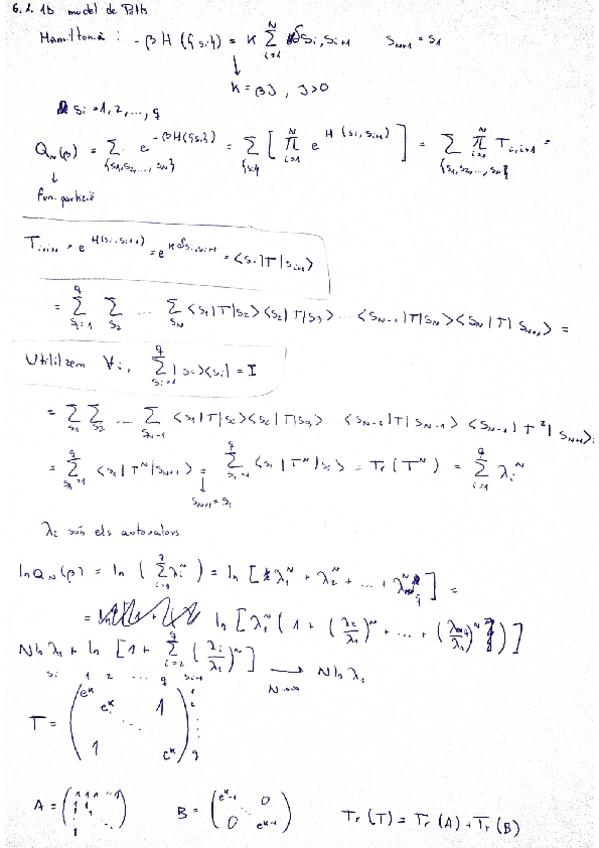 6.1. 1D model de Potts
Hamiltonià : -βH({si}) = K ∑_{i=1}^{N} δ_{si,si+1}   S_{N+1} = S_1
↓
K = βJ , J>0
si = 1, 2, ..., q
Q_N(β) = ∑_{{s1,s2,...,sN}} e^{-βH({si})} = ∑_{{si}} [ ∏_{i=1}^{N} e^{H(si,si+1)} ] = ∑_{{s1,s2,...,sN}} ∏_{i=1}^{N} T_{i,i+1} =
↓
fun. partició
T_{i,i+1} = e^{H(si,si+1)} = e^{K δ_{si,si+1}} = <si|T|si+1>
= ∑_{s1=1}^{q} ∑_{s2} ... ∑_{sN} <s1|T|s2><s2|T|s3> ... <sN-1|T|sN><sN|T|sN+1> =
Utilitzem ∀i, ∑_{si=1}^{q} |si><si| = I
= ∑_{s1} ∑_{s2} ... ∑_{sN-1} <s1|T|s2><s2|T|s3> ... <sN-2|T|sN-1><sN-1|T^2|sN+1>
= ∑_{s1=1}^{q} <s1|T^N|sN+1> = ∑_{s1=1}^{q} <s1|T^N|s1> = Tr(T^N) = ∑_{i=1}^{q} λ_i^N
↓
sN+1 = s1
λi són els autovalors
ln Q_N(β) = ln ( ∑_{i=1}^{q} λ_i^N ) = ln [ λ_1^N + λ_2^N + ... + λ_q^N ] =
= ln [ λ_1^N ( 1 + (λ_2/λ_1)^N + ... + (λ_q/λ_1)^N ) ]
N ln λ_1 + ln [ 1 + ∑_{i=2}^{q} (λ_i/λ_1)^N ] ⟶_{N→∞} N ln λ_1
si 1 2 ... q si+1
T = ( e^K e^K 1 ⋱ 1 e^K ) 1 2 ⋮ q
A = ( 1 1 1 ... 1 1 1 ⋮ ⋱ 1 )   B = ( e^K-1 0 ⋱ 0 e^K-1 )   Tr(T) = Tr(A) + Tr(B)